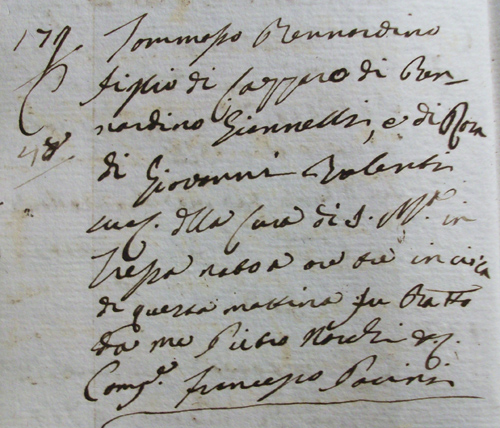 Tommaso Bernardino
figlio di Lazzaro di Ber-
nardino Giannelli, e di Rosa
di Giovanni Valenti
della Cura di S. M.ª in
nato a ore tre in circa
di questa mattina fu batt.o
da me Pietro
Comp.e Francesco Pacini